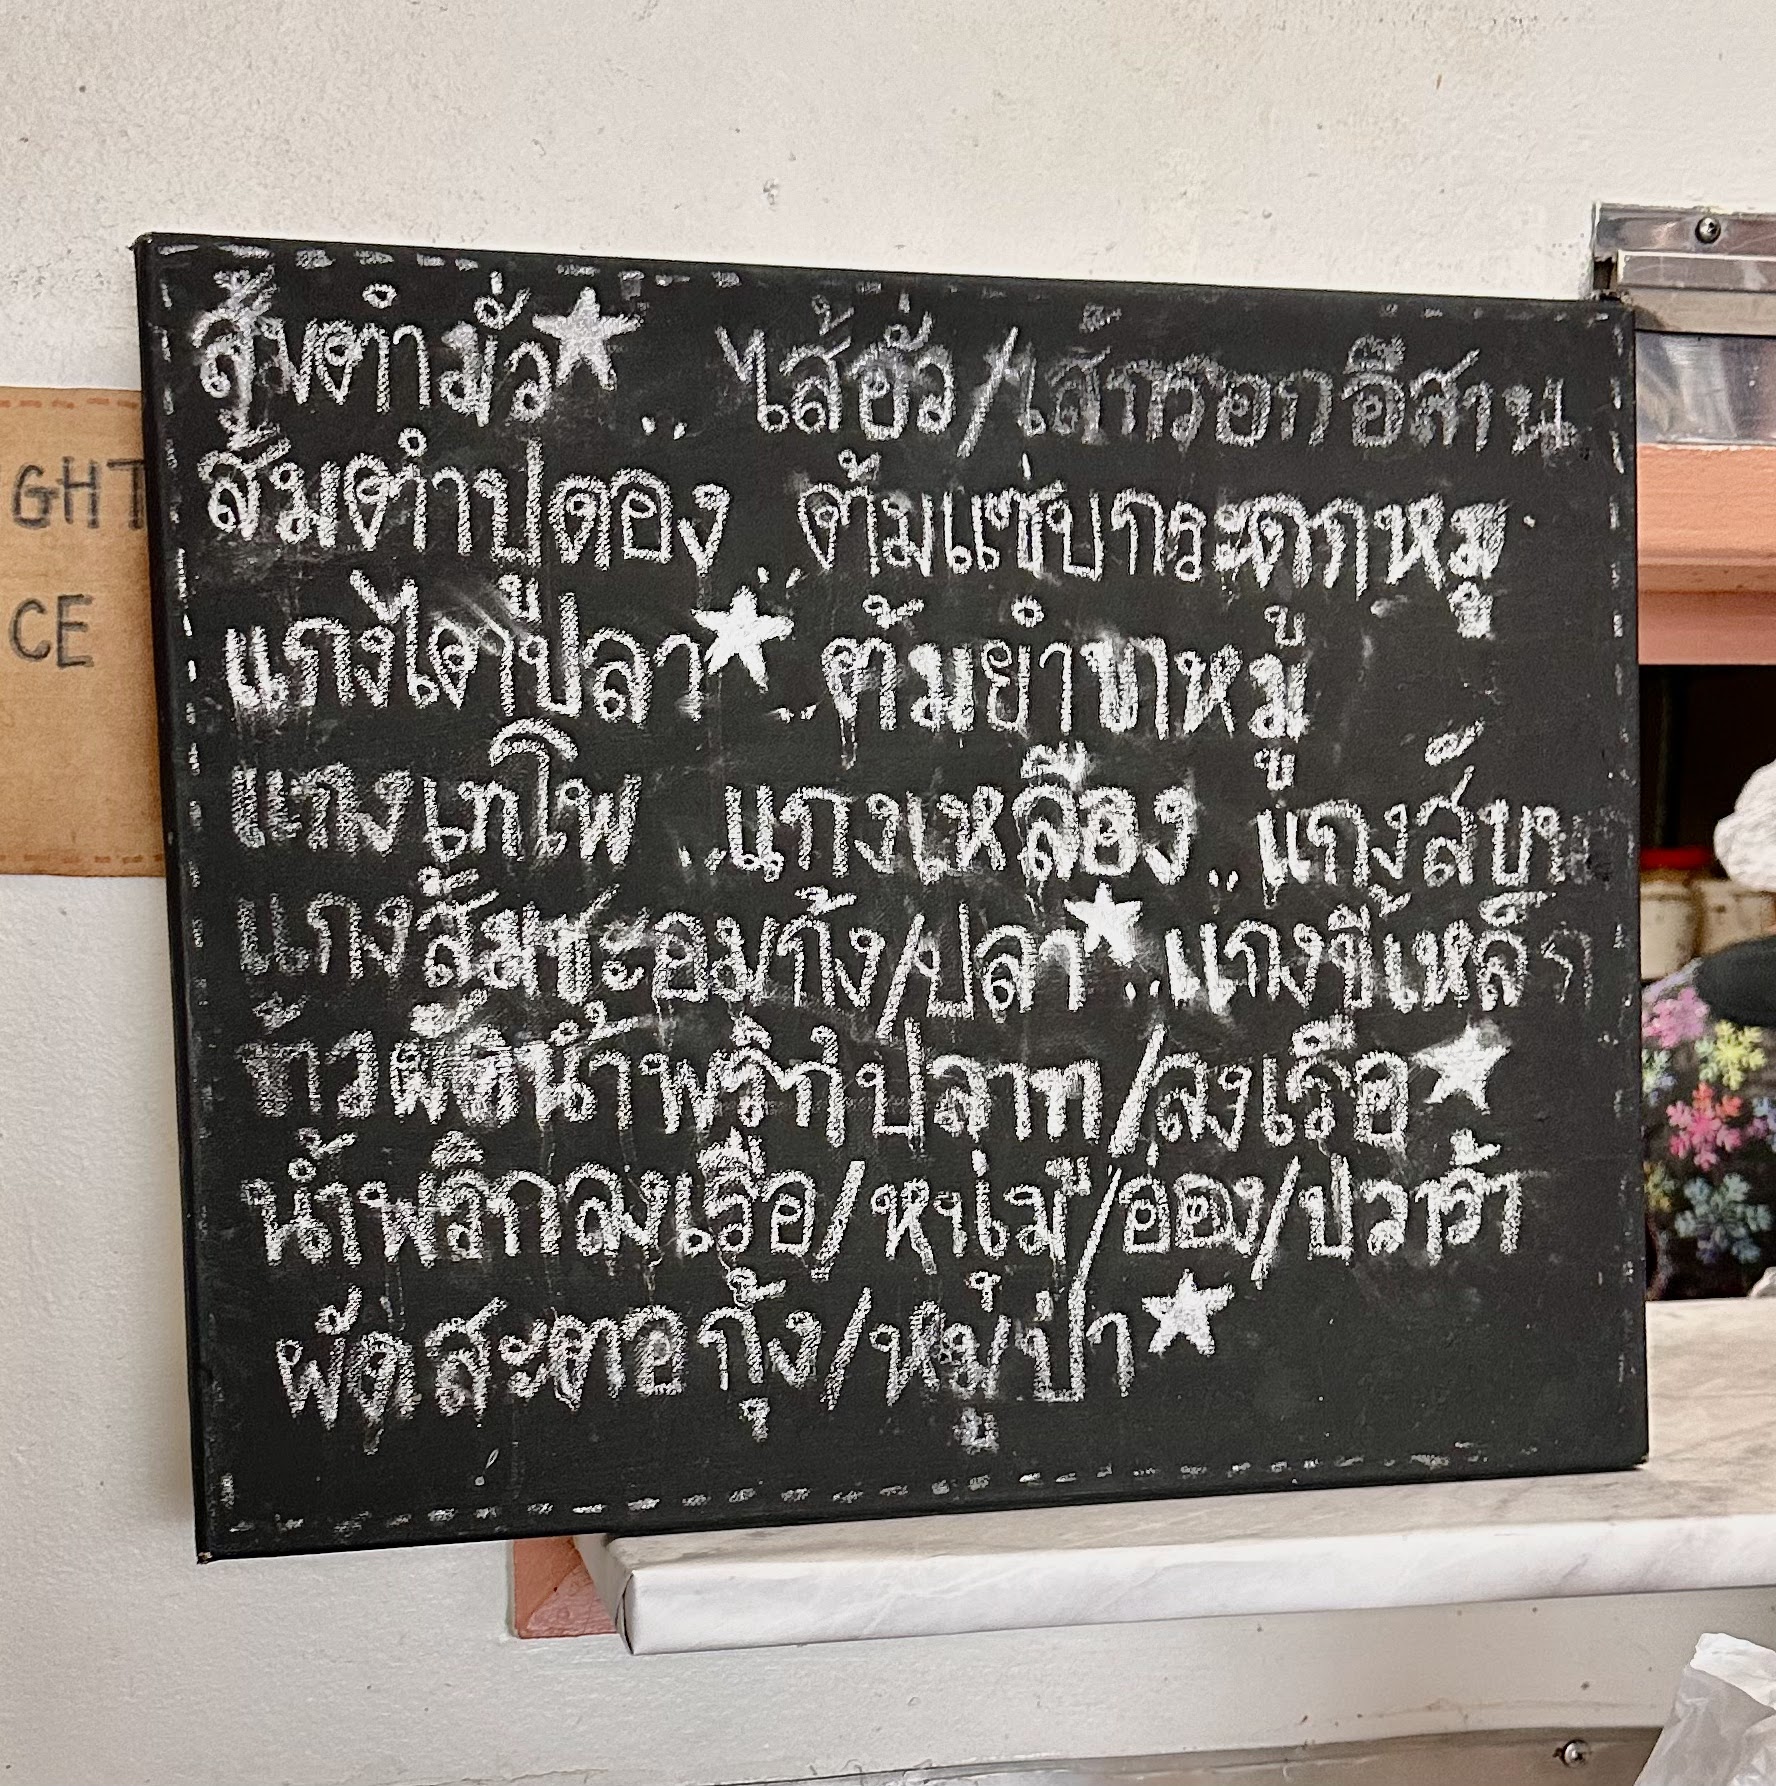 GHT
CE
ส้มตำมั่ว★.. ไส้อั่ว/ไส้กรอกอีสาน
ส้มตำปูดอง..ต้มแซ่บกระดูกหมู
แกงไตปลา★..ต้มยำขาหมู
แกงเทโพ ..แกงเหลือง..แกงส้ม
แกงส้มชะอมกุ้ง/ปลา★..แกงขี้เหล็ก
ข้าวผัดน้ำพริกปลาทู/ลงเรือ★
น้ำพริกลงเรือ/หนุ่ม/อ่อง/ปลาร้า
ผัดสะตอกุ้ง/หมูป่า★